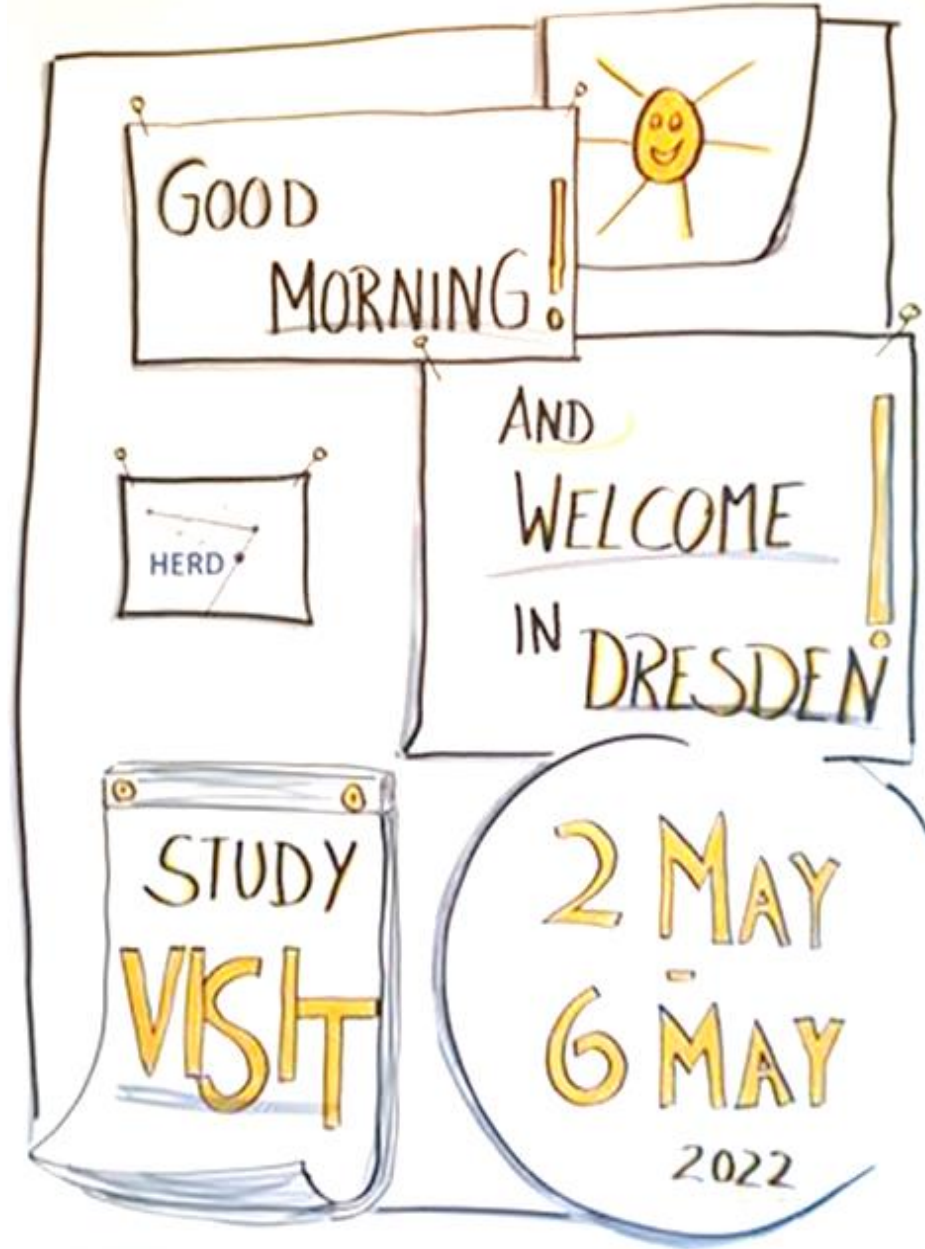 GOOD
MORNING!
AND
WELCOME
IN
DRESDEN!
HERD
STUDY
VISIT
2 MAY
-
6 MAY
2022